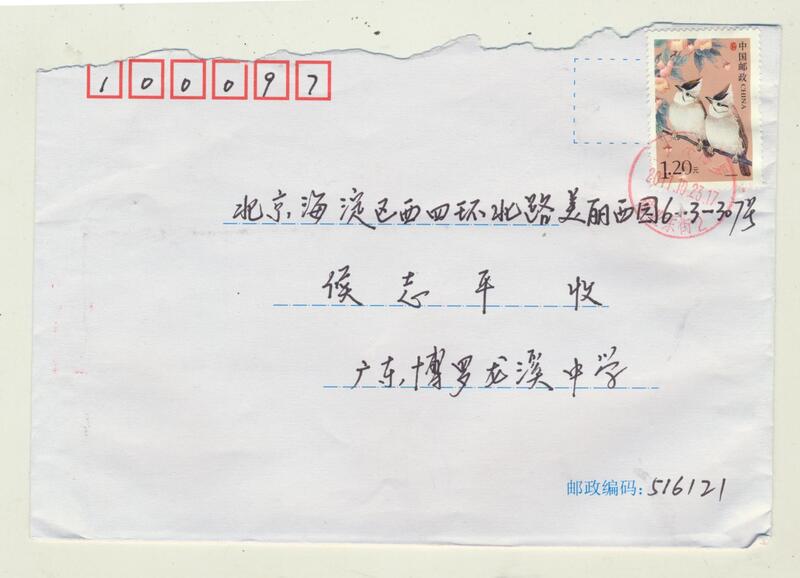 100097
中国邮政 CHINA
1.20元
2011.10.23.17
北京海淀区西四环北路美丽西园16-3-307号
侯志平 收
广东博罗龙溪中学
邮政编码：516121